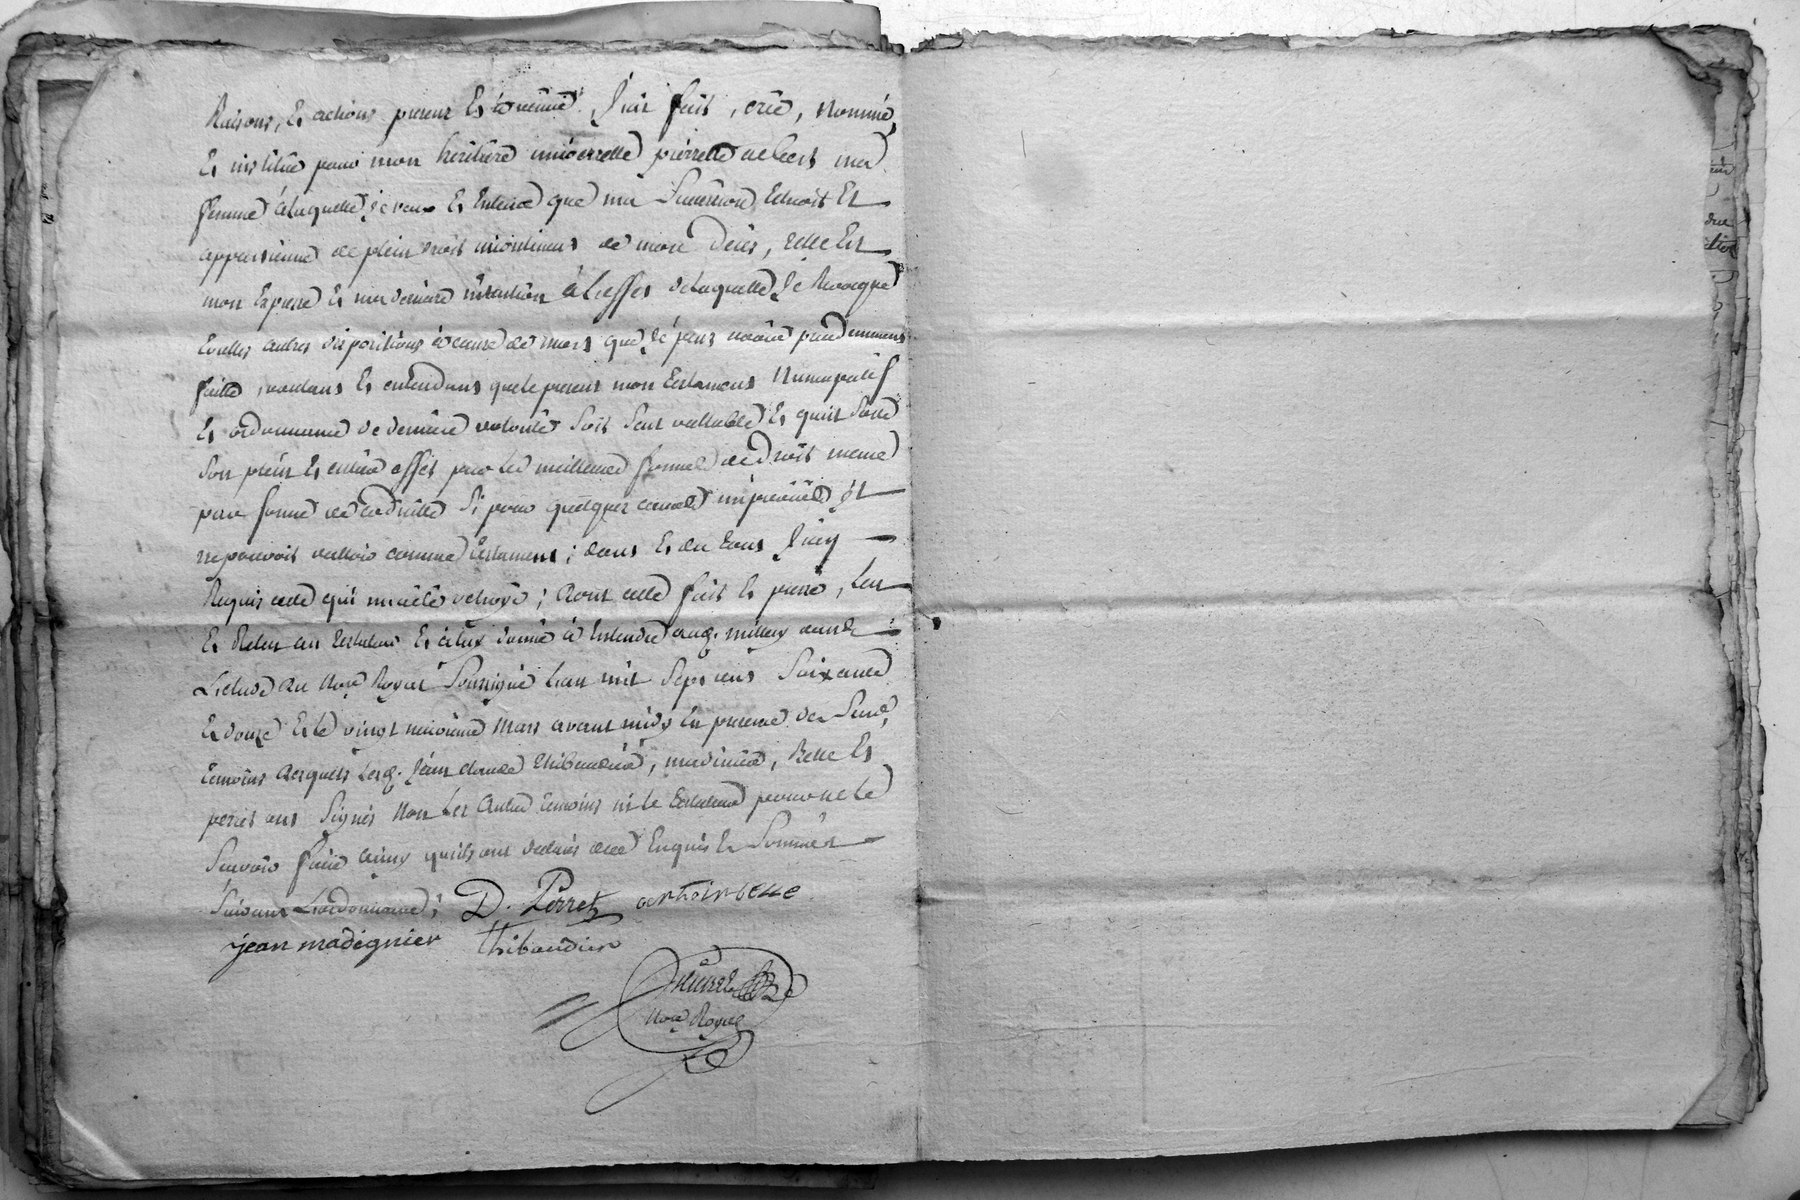 Raisons, Et actions presens Et avenir J'ai fait, créé, Nommé,
Et institué pour mon heritiere universelle pierrette ma
femme à laquelle je veux Et Entend que ma Succession Echoit Et
appartienne de plein droit incontinent de mon Decès, telle Est
mon Expresse Et ma derniere intention à L'effet delaquelle Je Revocque
touttes autres dispositions à cause de mort que Je peus avoir precedemment
faitte, voulans Et entendans que le present mon Testament Nuncupatif
Et ordonnance de derniere volonté soit seul vallable Et qu'il sorte
Son plein Et entier effet par la meilleure forme de Droit meme
par forme de codicille Si pour quelques causes imprevües il
ne pouvoit valloir comme Testament; dont Et du tout J'ay
Requis acte qui m'a été octroyé; dont acte fait Et passé, Leu
Et Releu au testateur Et à luy donné à Entendre
L'etude du Nore Royal Soussigné L'an mil Sept cens Soixante
Et douze Et le vingt neuvieme Mars avant midy En presence des Sieurs
temoins desquels Lesd. Jean claude thibaudier, madinier, Belle Et
perret ont Signés Non Les Autres temoins ni le testateur pour ne le
Sçavoir faire ainsy qu'ils ont declarés de ce Enquis Et Sommés
Suivant L'ordonnance; D. Perret antoin belle
jean madignier thibaudier
Nore Royal